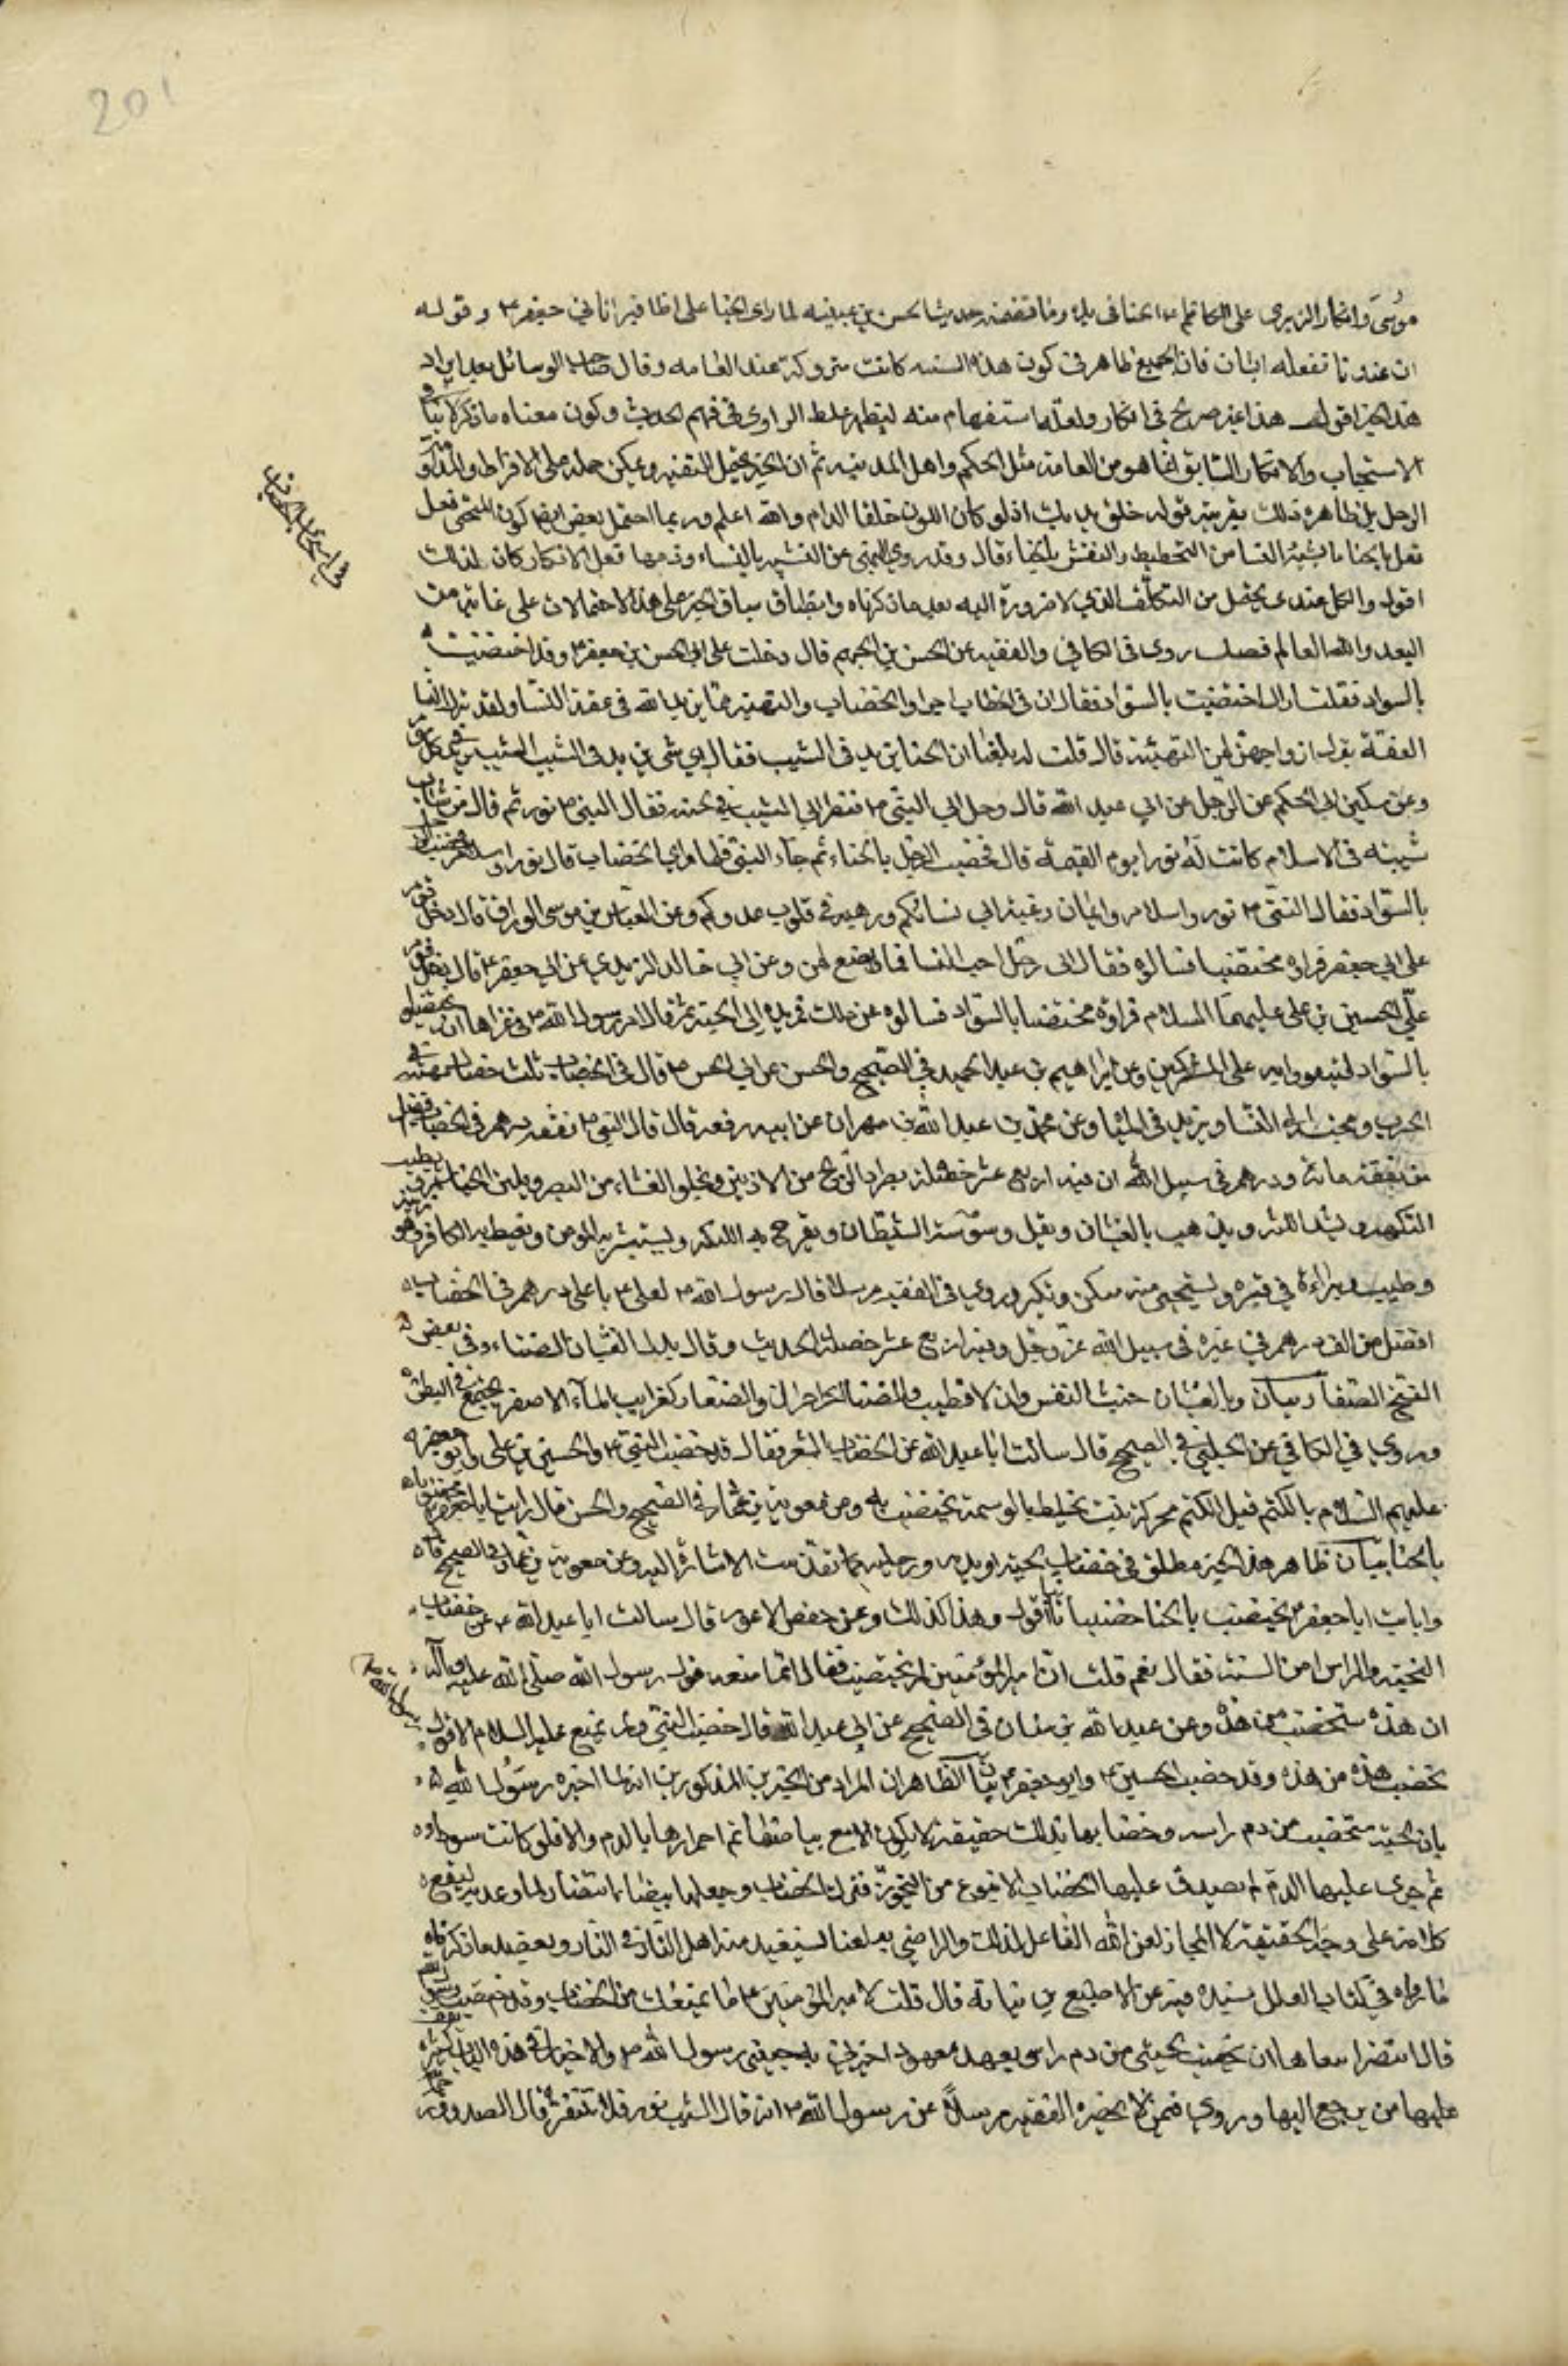 201
موسى وانكار الزبيرى على الكاظم ٤ الحنا فى يديه وما تضمنه حديث الحسن بن عيينه لما راى الحنا على اظافير ابي جعفر ٤ وقوله
ان عندنا تفعله الشبان فان الجميع ظاهر فى كون هذه السنه كانت متروكة عند العامه وقال صاحب الوسائل بعد ايراد
هذا الخبر اقول هذا غير صريح فى انكار ولعله استفهام منه ليظهر غلط الراوى فى فهم الحديث وكون معناه ما ذكر
الاستحباب والانكار السابق انما هو من العامة مثل الحكم واهل المدينه ثم ان الخبر يحتمل التقيه ويمكن حمله على الافراط
الرجل بل ظاهره ذلك بقرينة قوله خلق بيديك اذ لو كان اللون خلقا لدام والله اعلم وربما احتمل بعض ايضا كون المنهى فعل
تعل بالحنا ما يشبه النسا من التخطيط والنقش بالحناء قال وقد روى النهى عن التشبه بالنساء وذمها فعل الانكار كان لذلك
اقول والكل عندى محتمل من التكلف الذي لا ضرورة اليه بعد ما ذكرناه وانطباق سياق الخبر على هذه الاحتمالات على غاية من
البعد والله العالم فصل روى فى الكافي والفقيه عن الحسن بن الجهم قال دخلت على ابي الحسن بن جعفر ٤ وقد اختضبت
بالسواد فقلت اراك اختضبت بالسواد فقال ان فى الخضاب اجرا والخضاب والتهيئة مما يزيد الله فى عفة النسا ولقد ترك النسا
العفة بترك ازواجهن لهن التهيئة قال قلت له بلغنا ان الحنا يزيد فى الشيب فقال اي شى يزيد فى الشيب الشيب يزيد فى كل يوم
وعن مسكين ابى الحكم عن الرجل عن ابي عبد الله قال جاء رجل الى النبي ٤ فنظر الى الشيب في لحيته فقال النبي ٤ نور ثم قال من شاب
شيبه فى الاسلام كانت له نورا يوم القيمة قال فخضب الرجل بالحناء ثم جاء الى النبي فلما راى الخضاب قال نور واسلام فخضب الرجل
بالسواد فقال النبي ٤ نور واسلام وايمان ومحبة الى نسائكم ورهبة فى قلوب عدوكم وعن العباس بن موسى الوراق قال دخل قوم
على ابي جعفر فراوه مختضبا فسالوه فقال انى رجل احب النسا فانا اصنع لهن وعن ابي خالد الزيدي عن ابي جعفر ٤ قال دخل قوم
على الحسين بن على عليهما السلام فراوه مختضبا بالسواد فسالوه عن ذلك فمد يده الى لحيته ثم قال امر رسول الله ٤ فى غزاة غزاها ان يختضبوا
بالسواد ليقووا به على المشركين وعن ابراهيم بن عبد الحميد في الصحيح والحسن عن ابي الحسن ٤ قال فى الخضاب ثلث خصال مهيبة فى
الحرب ومحبة الى النسا ويزيد فى الباه وعن محمد بن عبد الله بن مهران عن ابيه رفعه قال قال النبي ٤ نفقة درهم فى الخضاب افضل
من نفقة مائة درهم فى سبيل الله ان فيه اربع عشر خصلة يطرد الريح من الاذنين ويجلو الغشاء من البصر ويلين الخياشيم ويطيب
النكهة ويشد اللثة ويذهب بالغشيان ويقل وسوسة الشيطان وتفرح به الملئكة ويستبشر به المؤمن ويغيظ به الكافر وهو زينة
وطيب وبراءة في قبره ويستحيى منه منكر ونكير وروي فى الفقيه مرسلا قال رسول الله ٤ لعلى ٤ يا على درهم فى الخضاب
افضل من الف درهم فى غيره فى سبيل الله عز وجل وفيه اربع عشر خصلة الحديث وقال بدل الغشيان الضنا وفى بعض
النسخ الصفار بيان والغثيان خبث النفس وان لا تطيب والضنا الهزال والصفار كغراب الماء الاصفر يجتمع فى البطن
وروي في الكافي عن الحلبي في الصحيح قال سالت ابا عبد الله عن الخضاب الشعر فقال قد خضب النبي ٤ والحسين بن على وابو جعفر
عليهم السلام بالكتم قيل الكتم محركة نبت يخلط بالوسمة يختضب به وعن معوية بن عمار فى الصحيح والحسن قال رايت ابا جعفر يختضب
بالحنا بيان ظاهر هذا الخبر مطلق فى خضاب لحيته او يديه ورجليه كما تقدمت الاشارة اليه وعن معوية بن عمار فى الصحيح قال
رايت ابا جعفر ٤ يختضب بالحنا خضابا قانيا اقول وهذا كذلك وعن حفص الاعور قال سالت ابا عبد الله ٤ عن خضاب
اللحيه والراس امن السنة فقال نعم قلت ان امير المؤمنين لم يختضب فقال انما منعه قول رسول الله صلى الله عليه وآله
ان هذه ستخضب من هذه وعن عبد الله بن سنان فى الصحيح عن ابي عبد الله قال خضب النبي ولم يمنع عليا السلام الا قول رسول الله
تخضب هذه من هذه وقد خضب الحسين ٤ وابو جعفر ٤ بيان الظاهر ان المراد من الخبرين المذكورين انه لما اخبره رسول الله
بان لحيته ستخضب من دم راسه وخضابها بذلك حقيقة لا يكون الا مع بياضها ثم احمرارها بالدم والا فلو كانت سوداء
ثم جرى عليها الدم لم يصدق عليها الخضاب الا بنوع من التجوز فترك الخضاب وجعلها بيضا انتظارا لما وعد به ليقع
كلامه على وجه الحقيقة لا المجاز لعن الله الفاعل لذلك والراضي به لعنا يستغيث منه اهل النار فى النار ويعضد ما ذكرناه
ما رواه في كتاب العلل بسنده فيه عن الاصبغ بن نباته قال قلت لامير المؤمنين ٤ ما يمنعك من الخضاب وقد خضب رسول الله
قال انتظر اشقاها ان يخضب لحيتى من دم راسى بعهد معهود اخبرنى به حبيبى رسول الله ٤ والاخبار فى هذه الباب كثيرة يقف
عليها من يرجع اليها وروي فى من لا يحضره الفقيه مرسلا عن رسول الله ٤ انه قال الشيب نور فلا تنتفوه قال الصدوق